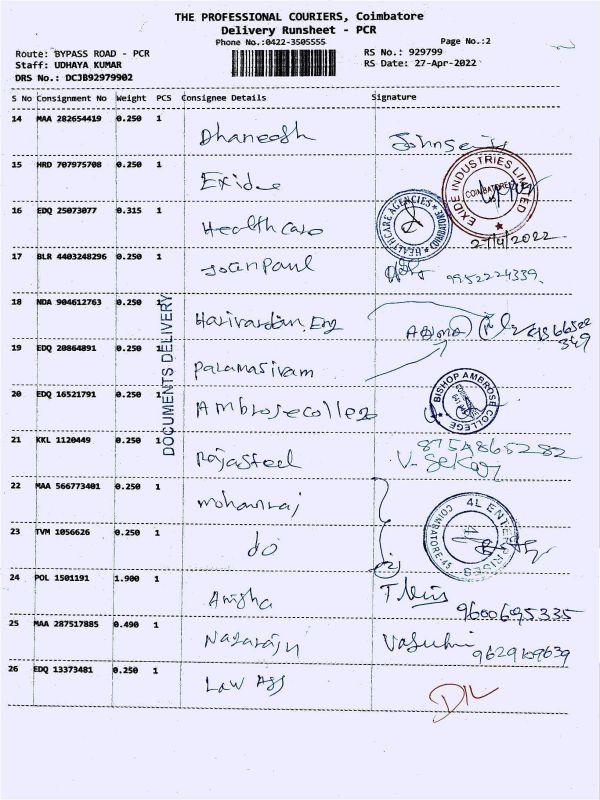 THE PROFESSIONAL COURIERS, Coimbatore
Delivery Runsheet - PCR
Phone No.:0422-3505555
Page No.:2
Route: BYPASS ROAD - PCR
RS No.: 929799
Staff: UDHAYA KUMAR
RS Date: 27-Apr-2022
DRS No.: DCJB92979902
S No Consignment No Weight PCS Consignee Details Signature
14 MAA 282654419 0.250 1 Dhaneesh
15 HRD 707975708 0.250 1 Exide
EXIDE INDUSTRIES LIMITED
COIMBATORE
27/4/2022
16 EDQ 25073077 0.315 1 Healthcare
HEALTHCARE AGENCIES
COIMBATORE
17 BLR 4403248296 0.250 1 Joanpaul
9952224339
18 NDA 904612763 0.250 Harivardan Eng
DOCUMENTS DELIVERY
19 EDQ 20864891 0.250 1 Paramasivam
20 EDQ 16521791 0.250 1 Ambrose college
BISHOP AMBROSE COLLEGE
21 KKL 1120449 0.250 1 Rajasteel
V. Sekar
22 MAA 566773401 0.250 Mohanraj
4L ENTERPRISES
COIMBATORE-45
23 TVM 1056626 0.250 1 do
24 POL 1501191 1.900 1 Anisha
9600695335
25 MAA 287517885 0.490 1 Nagaraju Vasuki
9629109639
26 EDQ 13373481 0.250 1 Law Ass
DIL